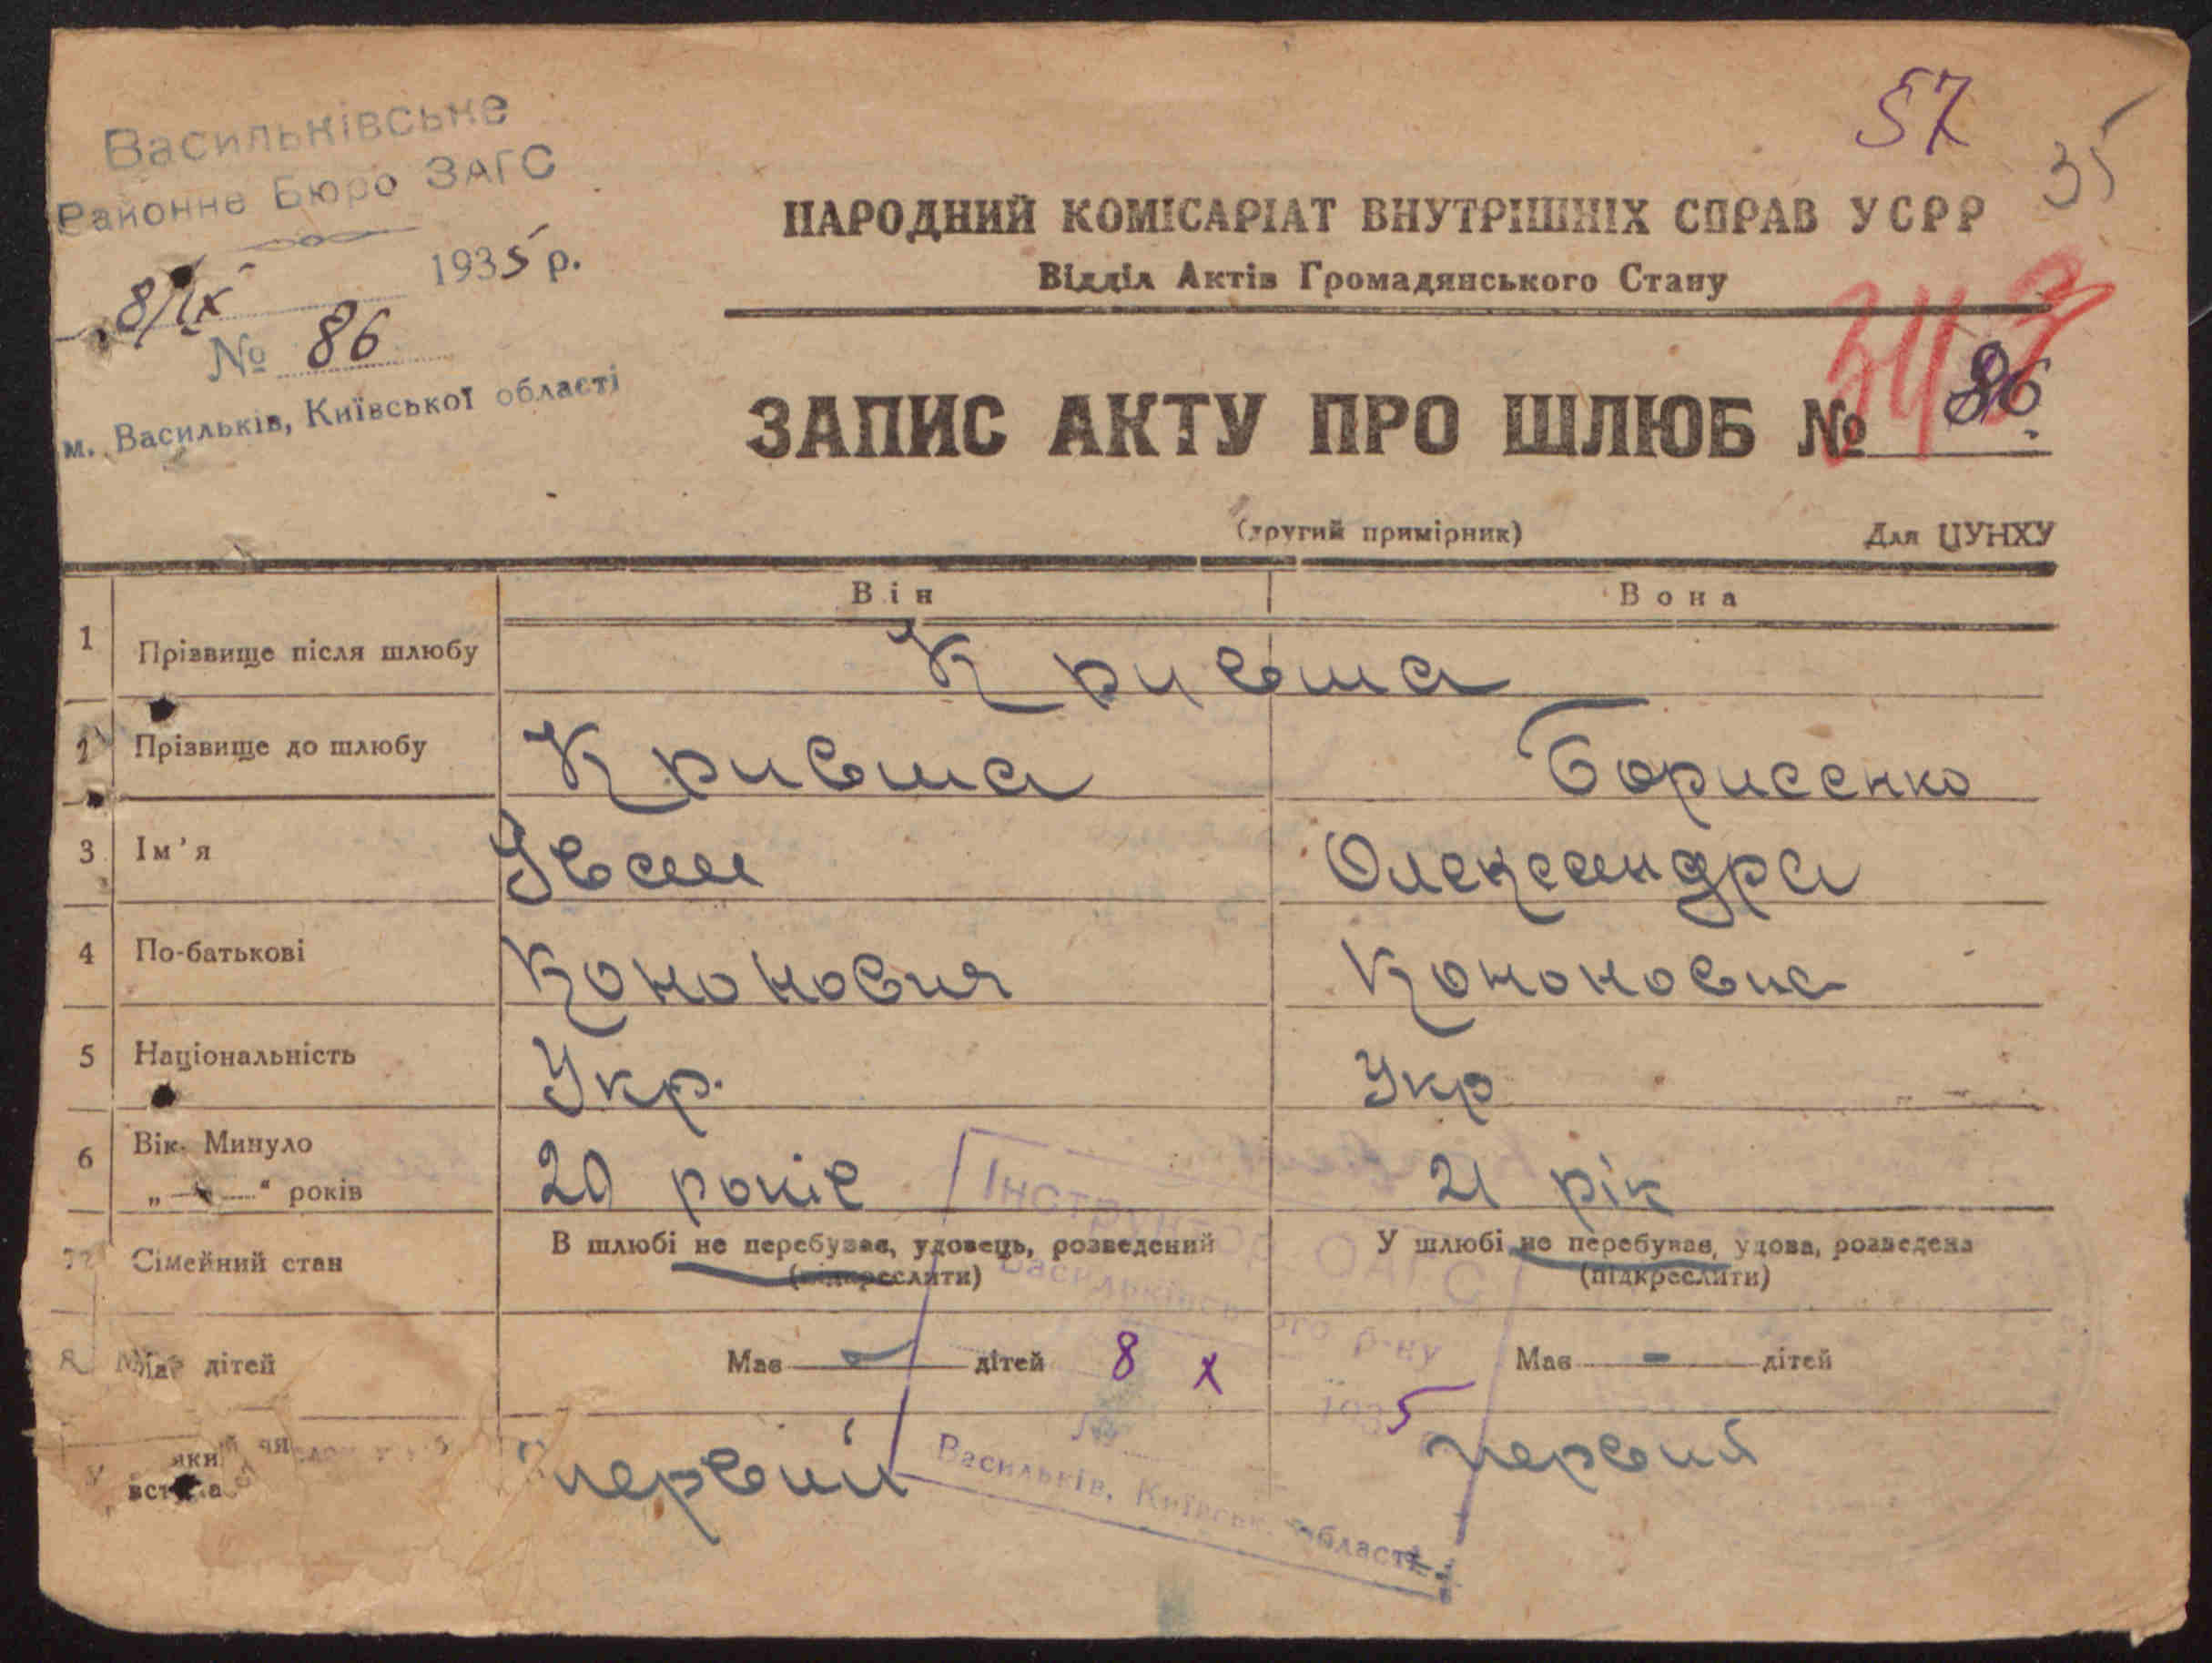 Васильківське
Районне Бюро ЗАГС
8/IX 1935 р.
№ 86
м. Васильків, Київської області
57
35
НАРОДНИЙ КОМІСАРІАТ ВНУТРІШНІХ СПРАВ УСРР
Відділ Актів Громадянського Стану
343
ЗАПИС АКТУ ПРО ШЛЮБ № 86
(другий примірник) Для ЦУНХУ
Він Вона
1 Прізвище після шлюбу Кривша
2 Прізвище до шлюбу Кривша Борисенко
3 Ім'я Івам Олександра
4 По-батькові Кононович Кононовна
5 Національність Укр. Укр
6 Вік. Минуло
„ — “ років 20 років 21 рік
Сімейний стан В шлюбі не перебуває, удовець, розведений У шлюбі не перебуває, удова, розведена
(підкреслити) (підкреслити)
Має дітей Має — дітей Має — дітей
первий первий
Інструктор ОАГС
Васильківського р-ну
8 X 1935
Васильків, Київськ. області